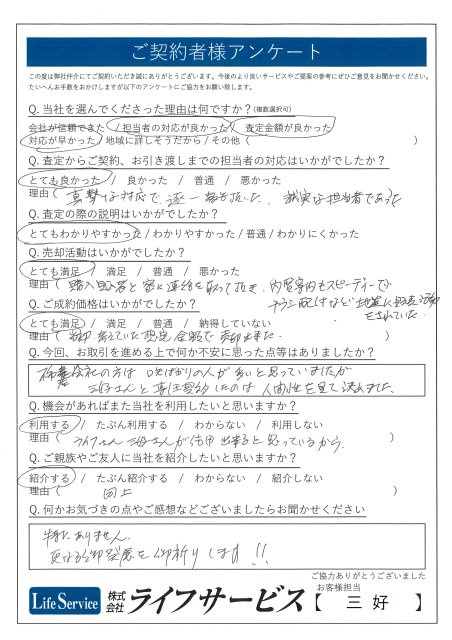 ご契約者様アンケート
この度は弊社仲介にてご契約いただき誠にありがとうございます。今後のより良いサービスやご提案の参考にぜひご意見をお聞かせください。
たいへんお手数をおかけしますが以下のアンケートにご協力をお願い致します。
Q. 当社を選んでくださった理由は何ですか？(複数選択可)
会社が信頼できた / 担当者の対応が良かった / 査定金額が良かった
対応が早かった / 地域に詳しそうだから / その他 ( )
Q. 査定からご契約、お引き渡しまでの担当者の対応はいかがでしたか？
とても良かった / 良かった / 普通 / 悪かった
理由 ( 真摯な対応で、逐一 頂いた、誠実な担当者であった
Q. 査定の際の説明はいかがでしたか？
とてもわかりやすかった / わかりやすかった / 普通 / わかりにくかった
Q. 売却活動はいかがでしたか？
とても満足 / 満足 / 普通 / 悪かった
理由 ( 購入 客と 連絡を 頂き、内覧案内もスピーディーで
チラシ配りなど 地道に 活動
をされていた。
Q. ご成約価格はいかがでしたか？
とても満足 / 満足 / 普通 / 納得していない
理由 ( 考えていた想定金額で売却出来た。 )
Q. 今回、お取引を進める上で何か不安に思った点等はありましたか？
会社の方は 口ばかりの人が多いと思っていましたが
三好さんと 契約したのは 人間性を見て決めました。
Q. 機会があればまた当社を利用したいと思いますか？
利用する / たぶん利用する / わからない / 利用しない
理由 ( ライフさん 三好さんが信用出来ると思っているから。 )
Q. ご親族やご友人に当社を紹介したいと思いますか？
紹介する / たぶん紹介する / わからない / 紹介しない
理由 ( 同上 )
Q. 何かお気づきの点やご感想などございましたらお聞かせください
特にありません。
更なる御発展を御祈りします!!
ご協力ありがとうございました
お客様担当
Life Service 株式会社 ライフサービス 【 三好 】